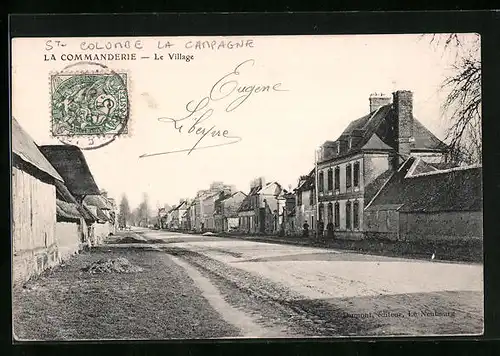 STE COLOMBE LA CAMPAGNE
LA COMMANDERIE — Le Village
Eugene
Dumont, éditeur, Le Neubourg